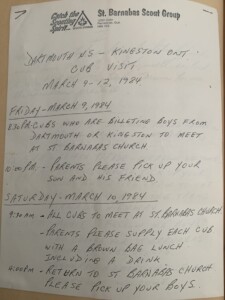 Catch the
Scouting
Spirit...
St. Barnabas Scout Group
DARTMOUTH NS - KINGSTON ONT
CUB VISIT
MARCH 9-12, 1984
FRIDAY - MARCH 9, 1984
CUBS WHO ARE BILLETING BOYS FROM
DARTMOUTH OR KINGSTON TO MEET
AT ST BARNABAS CHURCH
PM - PARENTS PLEASE PICK UP YOUR
SON AND HIS FRIEND
SATURDAY - MARCH 10, 1984
9:30 AM - ALL CUBS TO MEET AT ST BARNABAS CHURCH
- PARENTS PLEASE SUPPLY EACH CUB
WITH A BROWN BAG LUNCH
INCLUDING A DRINK
- RETURN TO ST BARNABAS CHURCH
PLEASE PICK UP YOUR BOYS.